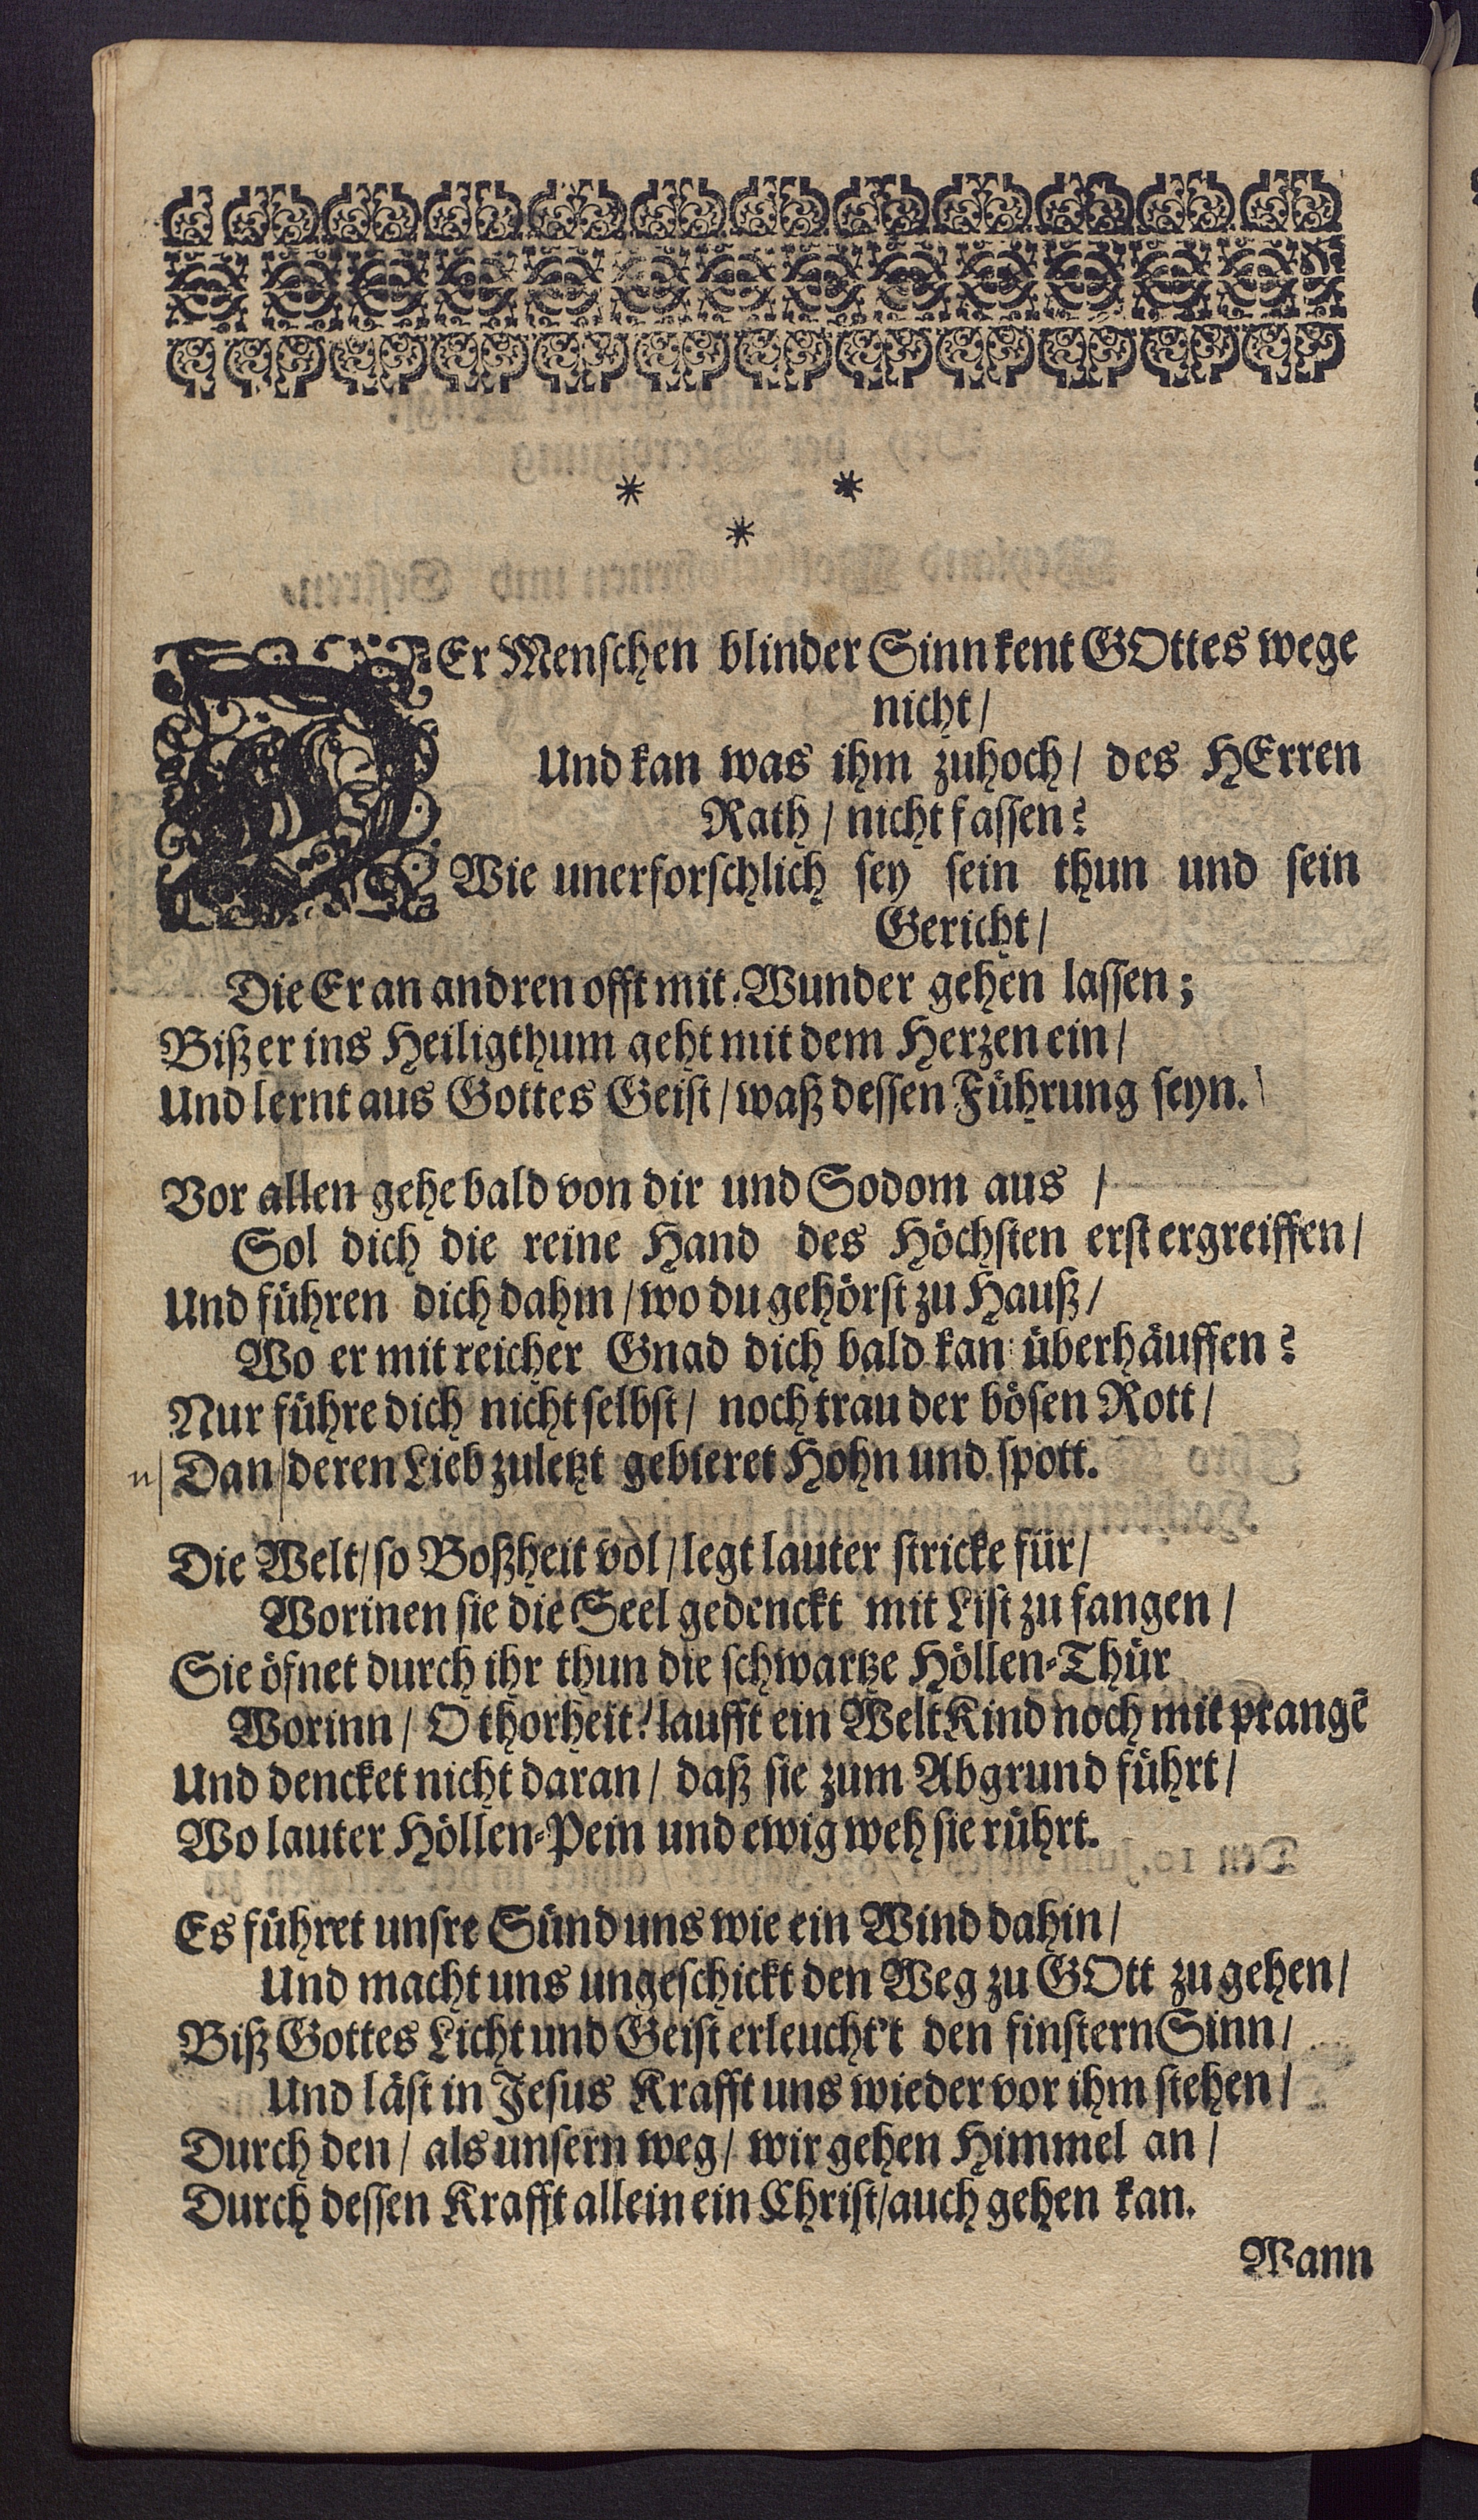 * *
*
DEr Menschen blinder Sinn kent GOttes wege
nicht /
Und kan was ihm zuhoch / des HErren
Rath / nicht fassen?
Wie unerforschlich sey sein thun und sein
Gericht /
Die Er an andren offt mit Wunder gehen lassen;
Biß er ins Heiligthum geht mit dem Herzen ein /
Und lernt aus Gottes Geist / waß dessen Führung seyn.
Vor allen gehe bald von dir und Sodom aus /
Sol dich die reine Hand des Höchsten erst ergreiffen /
Und führen dich dahin / wo du gehörst zu Hauß /
Wo er mit reicher Gnad dich bald kan überhäuffen?
Nur führe dich nicht selbst / noch trau der bösen Rott /
n| Dan| deren Lieb zuletzt gebieret Hohn und spott.
Die Welt / so Boßheit vol / legt lauter stricke für /
Worinen sie die Seel gedenckt mit List zu fangen /
Sie öfnet durch ihr thun die schwartze Höllen-Thür
Worinn / O thorheit! laufft ein Welt Kind noch mit prangē
Und dencket nicht daran / daß sie zum Abgrund führt /
Wo lauter Höllen-Pein und ewig weh sie rührt.
Es führet unsre Sünd uns wie ein Wind dahin /
Und macht uns ungeschickt den Weg zu GOtt zu gehen /
Biß Gottes Licht und Geist erleucht't den finstern Sinn /
Und läst in Jesus Krafft uns wieder vor ihm stehen /
Durch den / als unsern weg / wir gehen Himmel an /
Durch dessen Krafft allein ein Christ / auch gehen kan.
Wann